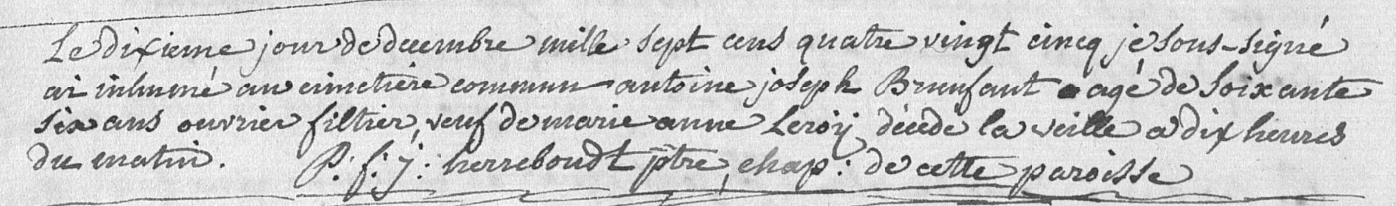 Le dixieme jour de decembre mille sept cens quatre vingt cincq je sous-signé
ai inhumé au cimetiere commun antoine joseph Brunfaut agé de soixante
six ans ouvrier filtier, veuf de marie anne Leroÿ décéde la veille a dix heures
du matin. P: f: j: herreboudt ptre, chap: de cette paroisse